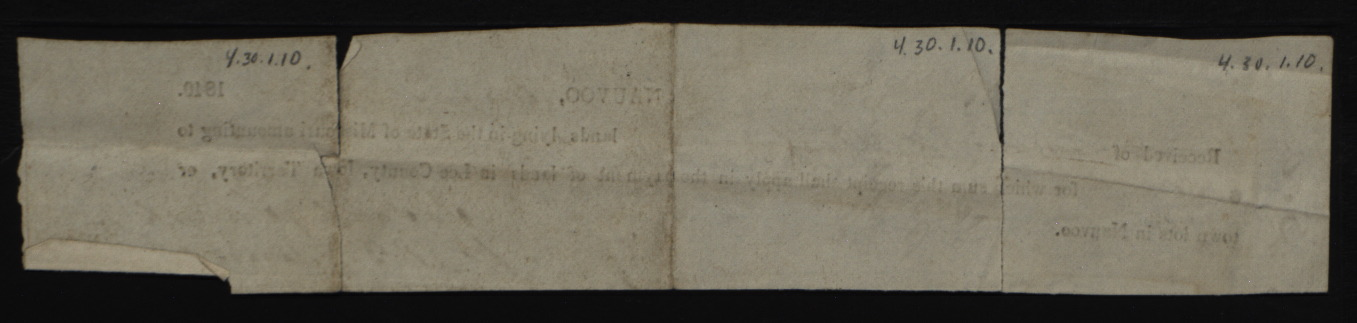 4.30.1.10. 4.30.1.10. 4.30.1.10.
NAUVOO, 1840.
Received of lands, lying in the State of Missouri amounting to
for which sum this receipt shall apply in the payment of lands in Lee County, Iowa Territory, or
town lots in Nauvoo.